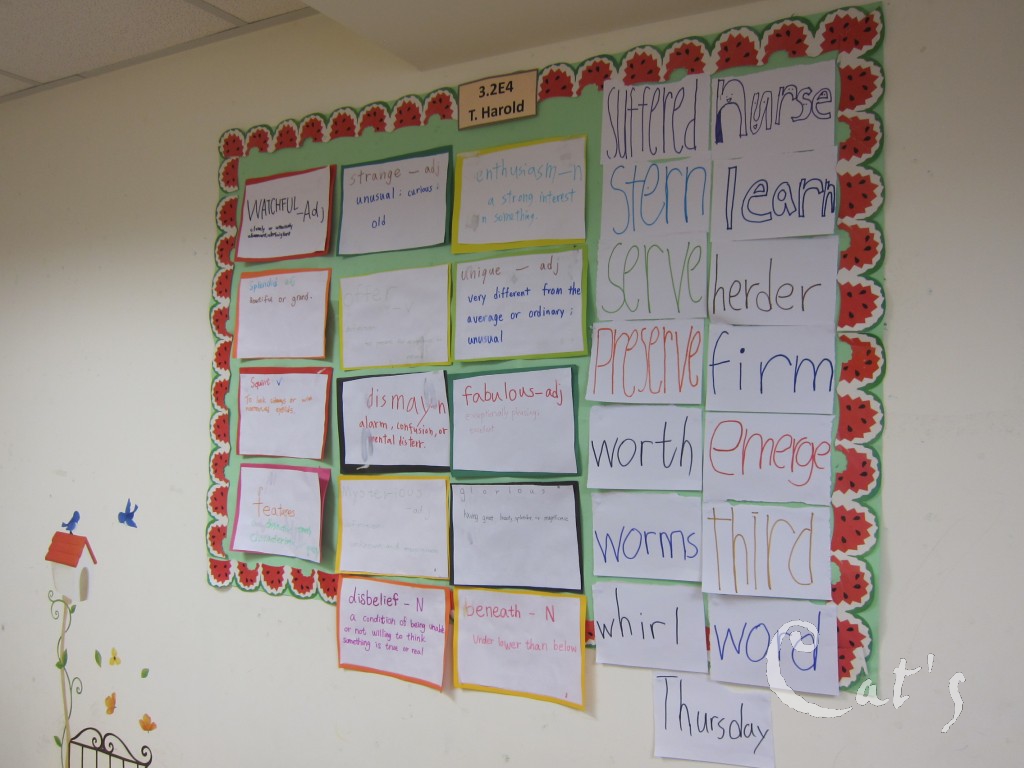 3.2E4
T. Harold
WATCHFUL-Adj
strange - adj
unusual ; curious ;
old
enthusiasm-n
a strong interest
in something.
splendid
beautiful or grand.
unique - adj
very different from the
average or ordinary ;
unusual
Square
dismay-n
alarm, confusion, or
mental disterr.
fabulous-adj
features
mysterious
adj
glorious
disbelief - N
a condition of being unable
or not willing to think
something is true or real
beneath - N
Under lower than below
suffered
nurse
stern
learn
serve
herder
Preserve
firm
worth
emerge
worms
third
whirl
word
Thursday
Cat's